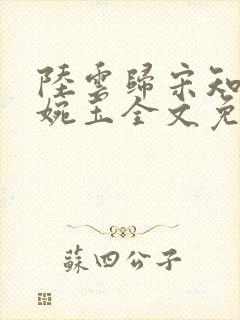 陸雲歸宋知
婉玉全文免
蘇四公子